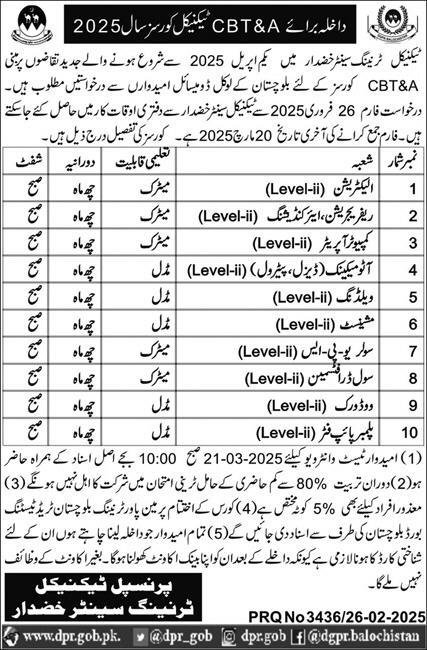 داخلہ برائے CBT&A ٹیکنیکل کورسز سال 2025
ٹیکنیکل ٹریننگ سینٹر خضدار میں یکم اپریل 2025 سے شروع ہونے والے جدید تقاضوں پر مبنی
CBT&A کورسز کے لئے بلوچستان کے لوکل ڈومیسائل امیدواروں سے درخواستیں مطلوب ہیں۔
درخواست فارم 26 فروری 2025 سے ٹیکنیکل سینٹر خضدار سے دفتری اوقات کار میں حاصل کئے جاسکتے
ہیں۔ فارم جمع کرانے کی آخری تاریخ 20 مارچ 2025 ہے۔ کورسز کی تفصیل درج ذیل ہیں۔
نمبر شمار شعبہ تعلیمی قابلیت دورانیہ شفٹ
1 الیکٹریشن (Level-ii) میٹرک چھ ماہ صبح
2 ریفریجریشن، ایئر کنڈیشنگ (Level-ii) میٹرک چھ ماہ صبح
3 کمپیوٹر آپریٹر (Level-ii) میٹرک چھ ماہ صبح
4 آٹو میکینک (ڈیزل، پیٹرول) (Level-ii) مڈل چھ ماہ صبح
5 ویلڈنگ (Level-ii) مڈل چھ ماہ صبح
6 مشینسٹ (Level-ii) مڈل چھ ماہ صبح
7 سولر یو-پی-ایس (Level-ii) میٹرک چھ ماہ صبح
8 سول ڈرافٹسمین (Level-ii) میٹرک چھ ماہ صبح
9 ووڈ ورک (Level-ii) مڈل چھ ماہ صبح
10 پلمبر پائپ فٹر (Level-ii) مڈل چھ ماہ صبح
(1) امیدوار ٹیسٹ وانٹرویو کیلئے 21-03-2025 صبح 10:00 بجے اصل اسناد کے ہمراہ حاضر
ہو (2) دوران تربیت 80% سے کم حاضری کے حامل ٹرینی امتحان میں شرکت کا اہل نہیں ہونگے (3)
معذور افراد کیلئے بھی 5% کوٹہ مختص ہے (4) کورس کے اختتام پر مین پاور ٹریننگ بلوچستان ٹریڈ ٹیسٹنگ
بورڈ بلوچستان کی طرف سے اسناد دی جائیں گے (5) تمام امیدوار جو داخلہ لینا چاہتے ہوں ان کے لئے
شناختی کارڈ کا ہونا لازمی ہے کیونکہ داخلے کے بعد ان کو اپنا بینک اکاونٹ کھولنا ہوگا۔ بغیر اکاونٹ کے وظائف
نہیں ملے گا۔
پرنسپل ٹیکنیکل
ٹریننگ سینٹر خضدار
PRQ No 3436/26-02-2025
www.dpr.gob.pk. @dpr_gob @dpr.gob @dgpr.balochistan